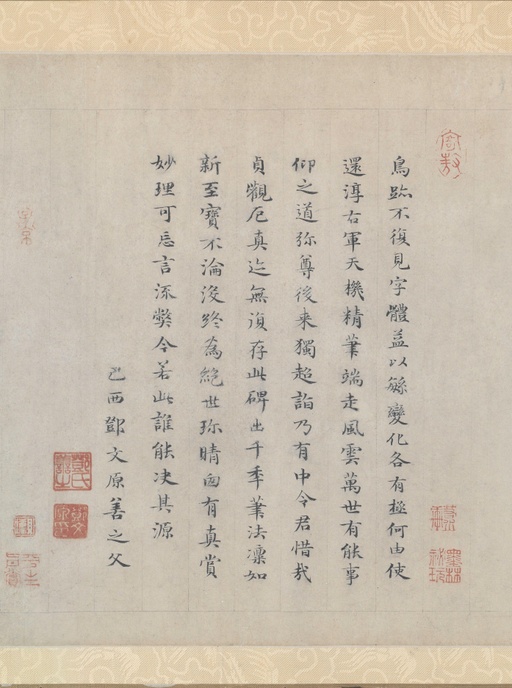 鳥跡不復見字體益以繇變化各有極何由使
還淳右軍天機精筆端走風雲萬世有能事
仰之道弥尊後来獨超詣乃有中令君惜哉
貞觀厄真迹無復存此碑出千季筆法凛如
新至寶不淪没終為絶世珎晴囪有真賞
妙理可忘言流弊今若此誰能决其源
己酉鄧文原善之父